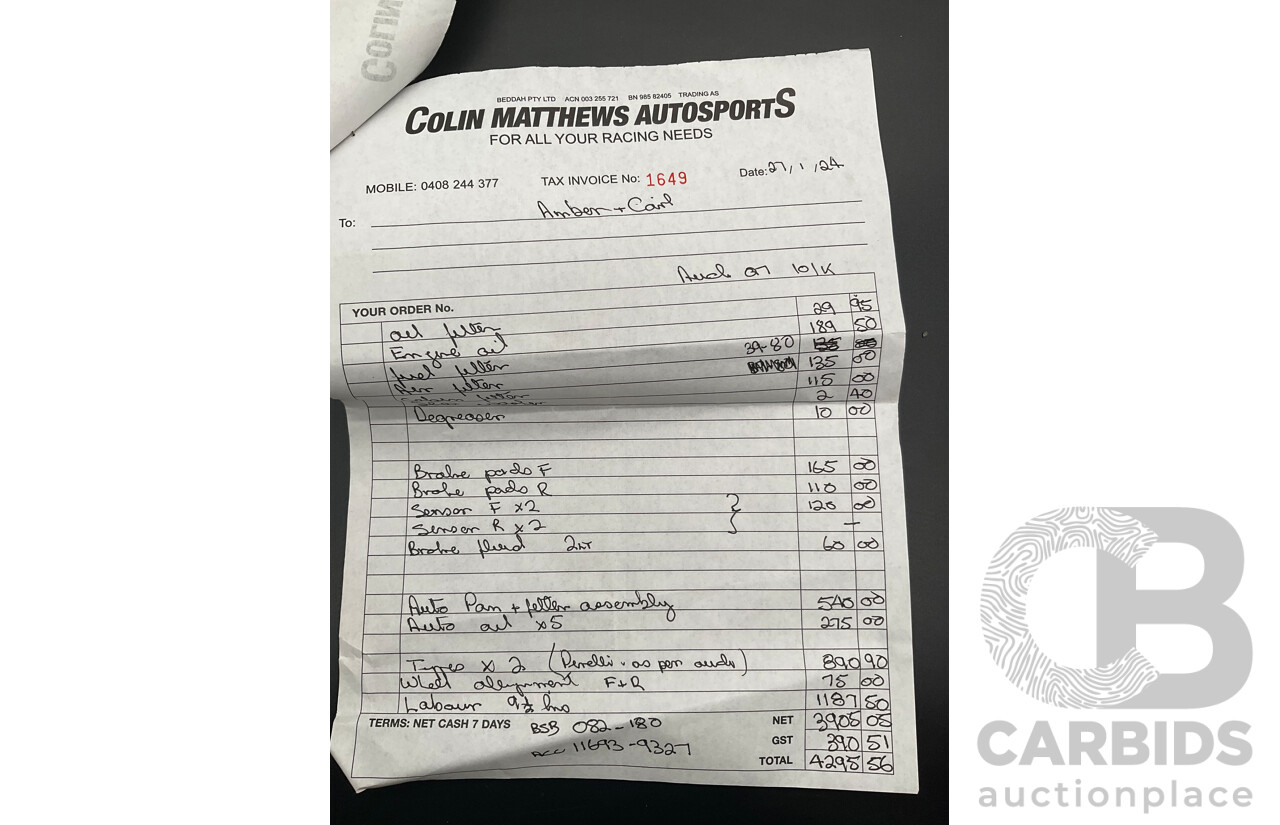 COLIN
BEDDAH PTY LTD ACN 003 255 721 BN 985 82405 TRADING AS
COLIN MATTHEWS AUTOSPORTS
FOR ALL YOUR RACING NEEDS
MOBILE: 0408 244 377 TAX INVOICE No: 1649 Date: 27/1/24
To: Amber + Carl
Audi Q7 101K
YOUR ORDER No.
oil filter 29 95
Engine oil 189 50
fuel filter 39-80
Air filter 135 00
Cabin filter 115 00
2 40
Degreaser 10 00
Brake pads F 165 00
Brake pads R 110 00
Sensor F x2 } 120 00
Sensor R x2 —
Brake fluid 2LT 60 00
Auto Pan + filter assembly 540 00
Auto oil x5 275 00
Tyres x 2 (Perelli - as per audi) 890 90
Wheel alignment F+R 75 00
Labour 9½ hrs 1187 50
TERMS: NET CASH 7 DAYS BSB 082-180 NET 3905 05
ACC 11693-9327 GST 390 51
TOTAL 4295 56
CB
CARBIDS
auctionplace